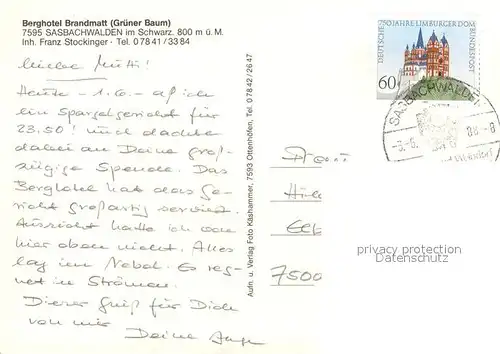 Berghotel Brandmatt (Grüner Baum)
7595 SASBACHWALDEN im Schwarz. 800 m ü. M.
Inh. Franz Stockinger · Tel. 0 78 41 / 33 84
Mutti!
Heute - 1.6. - aß ich
ein Spargelgericht für
23.50! und dachte
dabei an Deine groß-
zügige Spende. Das
Berghotel hat das Ge-
richt großartig serviert.
Aussicht hatte ich von
hier oben nicht. Alles
lag im Nebel. Es reg-
net in Strömen.
Dieser Gruß für Dich
von mir
Deine
Aufn. u. Verlag Foto Käshammer, 7593 Ottenhöfen, Tel. 0 78 42 / 26 47
DEUTSCHE BUNDESPOST
750 JAHRE LIMBURGER DOM
60
SASBACHWALDEN
7500
privacy protection
Datenschutz